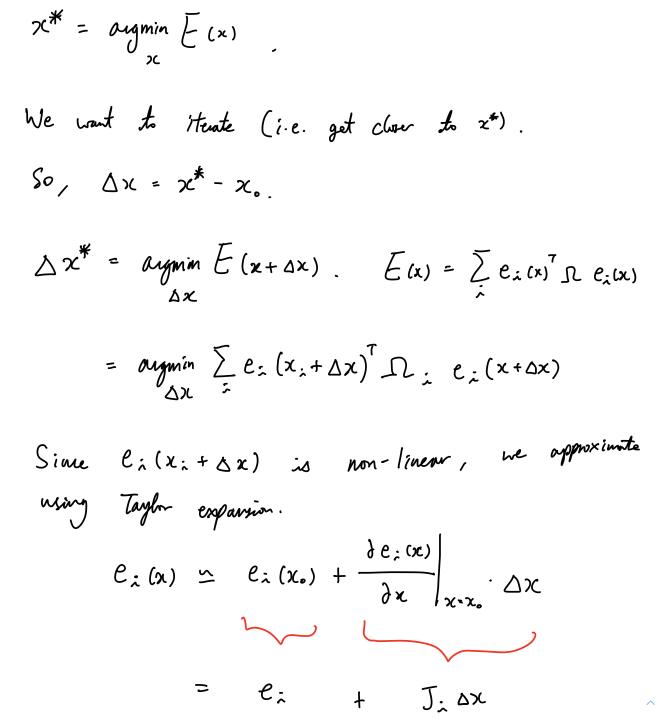 x* = argmin E(x) .
x
We want to iterate (i.e. get closer to x*) .
So, Δx = x* - x₀ .
Δx* = argmin E(x+Δx) . E(x) = Σ eᵢ(x)ᵀ Ω eᵢ(x)
Δx i
= argmin Σ eᵢ(xᵢ+Δx)ᵀ Ωᵢ eᵢ(x+Δx)
Δx i
Since eᵢ(xᵢ+Δx) is non-linear, we approximate
using Taylor expansion.
eᵢ(x) ≃ eᵢ(x₀) + ∂eᵢ(x)/∂x |x=x₀ · Δx
= eᵢ + Jᵢ Δx